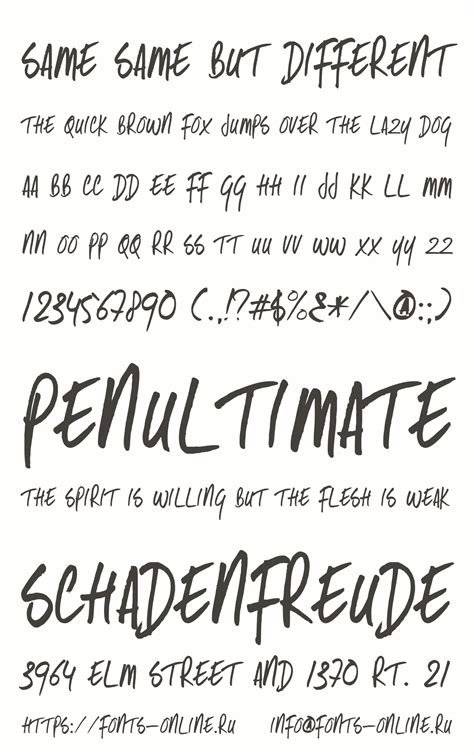 SAME SAME BUT DIFFERENT
THE QUICK BROWN FOX JUMPS OVER THE LAZY DOG
AA BB CC DD EE FF GG HH II JJ KK LL MM
NN OO PP QQ RR SS TT UU VV WW XX YY ZZ
1234567890 (.,!?#$%&*/\@:;)
PENULTIMATE
THE SPIRIT IS WILLING BUT THE FLESH IS WEAK
SCHADENFREUDE
3964 ELM STREET AND 1370 RT. 21
HTTPS://FONTS-ONLINE.RU INFO@FONTS-ONLINE.RU